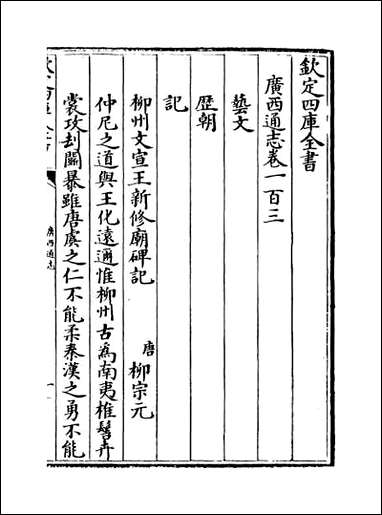 欽定四庫全書
廣西通志卷一百三
藝文
歴朝
記
柳州文宣王新修廟碑記 唐 柳宗元
仲尼之道與王化遠邇惟柳州古為南夷椎髻卉
裳攻刦鬭暴雖唐虞之仁不能柔秦漢之勇不能
廣西通志